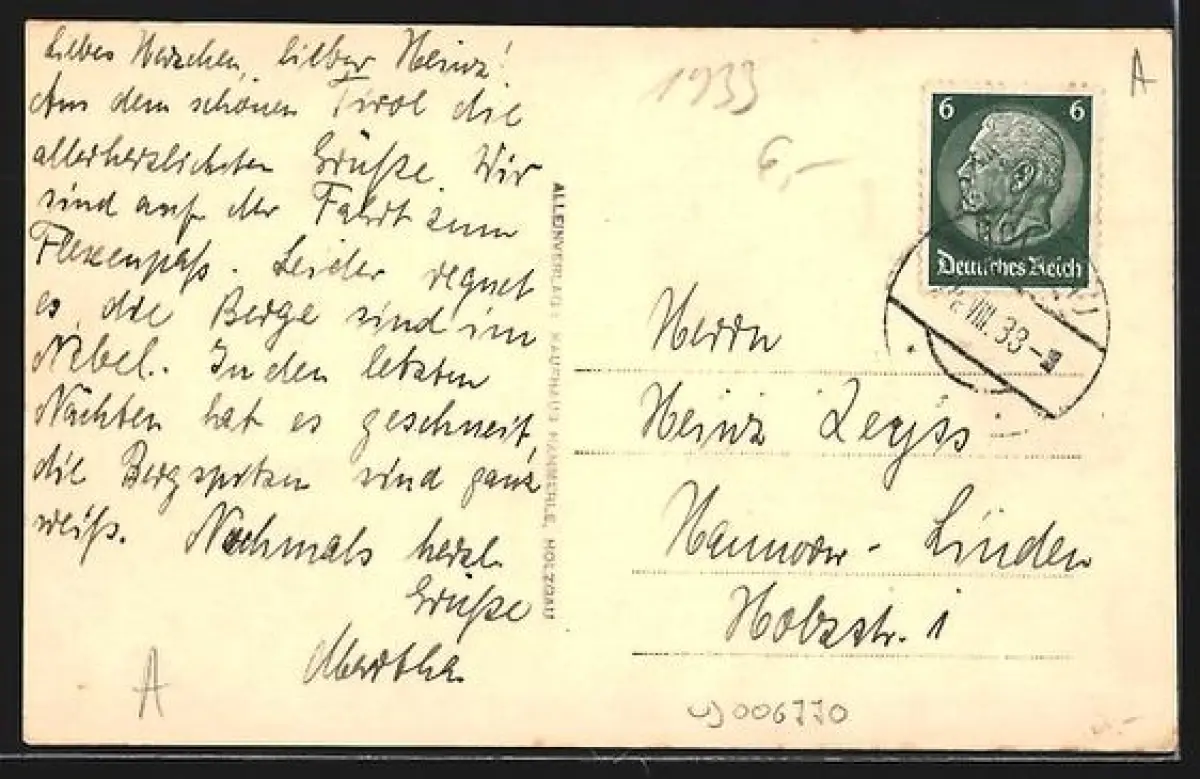 Liebes Herzchen, lieber Heinz!
Aus dem schönen Tirol die
allerherzlichsten Grüße. Wir
sind auf der Fahrt zum
Flexenpaß. Leider regnet
es, die Berge sind im
Nebel. In den letzten
Nächten hat es geschneit,
die Bergspitzen sind ganz
weiß. Nochmals herzl.
Grüße
Martha
A
ALLEINVERLAG: KAUFHAUS HAMMERLE, HOLZGAU
1933
6,-
A
6 6
Deutsches Reich
VIII. 33-
Herrn
Heinz
Hannover-Linden
Holzstr. 1
006770